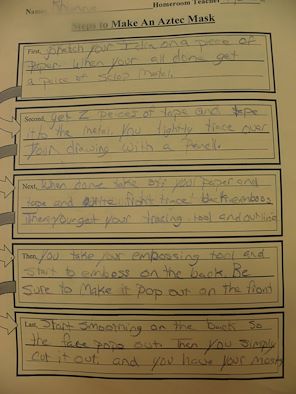 Name Rhianna Homeroom Teacher
Steps to Make An Aztec Mask
First, sketch your Idea on a peice of
Paper. When your all done get
a peice of metal.
Second, get 2 peices of tape and tape
it to the metal. You lightly trace over
Your drawing with a pencil.
Next, When done take off your paper and
tape and trace back
Then you get your tracing tool and outline
Then, You take your embossing tool and
start to emboss on the back. Be
sure to make it pop out on the front
Last, Start smoothing on the back so
the face pops out. Then you simply
cut it out. and you have your mask